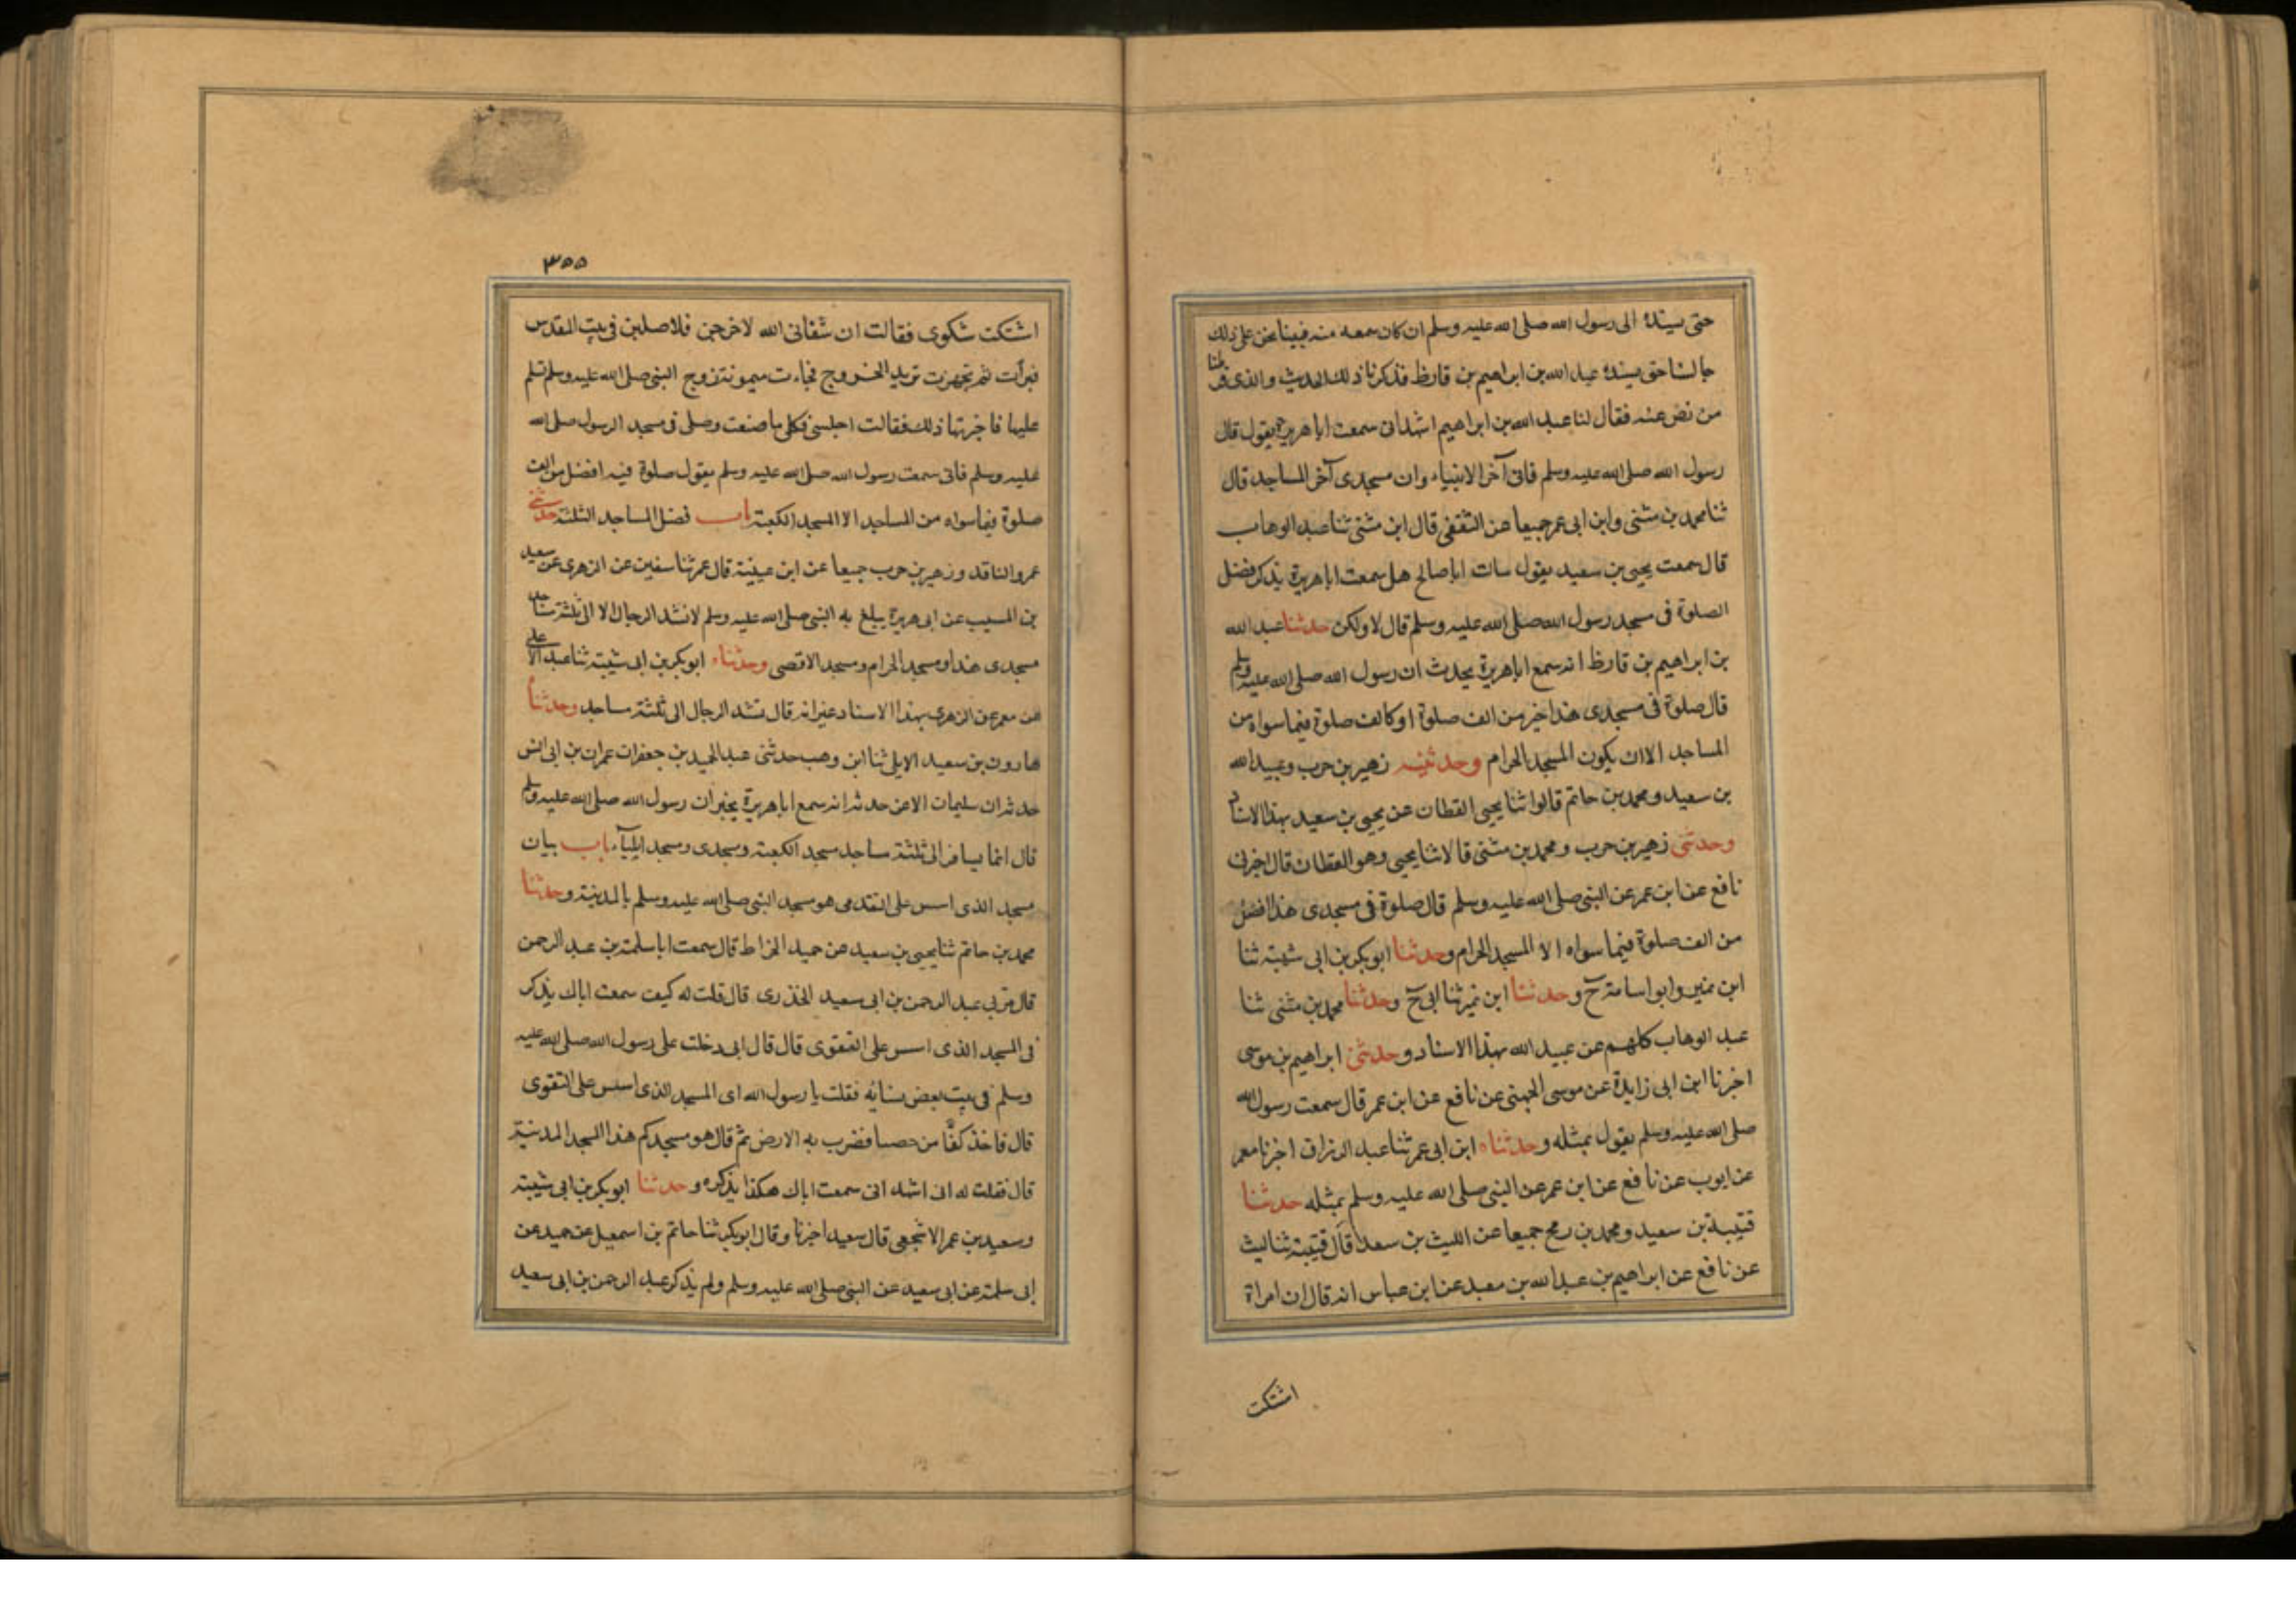 حتى يسنده الى رسول الله صلى الله عليه وسلم ان كان سمعه منه فبينا نحن على ذلك
جالسنا حتى يسنده عبد الله بن ابراهيم بن قارظ فذكرنا ذلك الحديث والذى فرطنا
من نص عنه فقال لنا عبد الله بن ابراهيم اشهد انى سمعت ابا هريرة يقول قال
رسول الله صلى الله عليه وسلم فانى آخر الانبياء وان مسجدى آخر المساجد قال
ثنا محمد بن مثنى وابن ابى عمر جميعا عن الثقفى قال ابن مثنى ثنا عبد الوهاب
قال سمعت يحيى بن سعيد يقول سات ابا صالح هل سمعت ابا هريرة يذكر فضل
الصلوة فى مسجد رسول الله صلى الله عليه وسلم قال لا ولكن حدثنا عبد الله
بن ابراهيم بن قارظ انه سمع ابا هريرة يحدث ان رسول الله صلى الله عليه وسلم
قال صلوة فى مسجدى هذا خير من الف صلوة او كالف صلوة فيما سواه من
المساجد الا ان يكون المسجد الحرام وحدثنيه زهير بن حرب وعبيد الله
بن سعيد ومحمد بن حاتم قالوا ثنا يحيى القطان عن يحيى بن سعيد بهذا الاسناد
وحدثنى زهير بن حرب ومحمد بن مثنى قالا ثنا يحيى وهو القطان قال اخبرنى
نافع عن ابن عمر عن النبى صلى الله عليه وسلم قال صلوة فى مسجدى هذا افضل
من الف صلوة فيما سواه الا المسجد الحرام وحدثنا ابو بكر بن ابى شيبة ثنا
ابن نمير وابو اسامة ح وحدثنا ابن نمير ثنا ابى ح وحدثنا محمد بن مثنى ثنا
عبد الوهاب كلهم عن عبيد الله بهذا الاسناد وحدثنى ابراهيم بن موسى
اخبرنا ابن ابى زايدة عن موسى الجهنى عن نافع عن ابن عمر قال سمعت رسول الله
صلى الله عليه وسلم يقول بمثله وحدثناه ابن ابى عمر ثنا عبد الرزاق اخبرنا معمر
عن ايوب عن نافع عن ابن عمر عن النبى صلى الله عليه وسلم بمثله حدثنا
قتيبة بن سعيد ومحمد بن رمح جميعا عن الليث بن سعد قال قتيبة ثنا ليث
عن نافع عن ابراهيم بن عبد الله بن معبد عن ابن عباس انه قال ان امراة
اشتكت
٣٥٥
اشتكت شكوى فقالت ان شفانى الله لاخرجن فلاصلين فى بيت المقدس
فبرأت ثم تجهزت تريد الخروج فجاءت ميمونة زوج النبى صلى الله عليه وسلم تسلم
عليها فاخبرتها ذلك فقالت اجلسى فكلى ما صنعت وصلى فى مسجد الرسول صلى الله
عليه وسلم فانى سمعت رسول الله صلى الله عليه وسلم يقول صلوة فيه افضل من الف
صلوة فيما سواه من المساجد الا المسجد الكعبة باب فضل المساجد الثلثة حدثنى
عمرو الناقد وزهير بن حرب جميعا عن ابن عيينة قال عمر ثنا سفين عن الزهرى عن سعيد
بن المسيب عن ابى هريرة يبلغ به النبى صلى الله عليه وسلم لا تشد الرحال الا الى ثلثة مساجد
مسجدى هذا ومسجد الحرام ومسجد الاقصى وحدثناه ابو بكر بن ابى شيبة ثنا عبد الاعلى
عن معمر عن الزهرى بهذا الاسناد غير انه قال تشد الرحال الى ثلثة مساجد وحدثنا
هارون بن سعيد الايلى ثنا ابن وهب حدثنى عبد الحميد بن جعفر ان عمران بن ابى انس
حدثه ان سليمان الاغر حدثه انه سمع ابا هريرة يخبر ان رسول الله صلى الله عليه وسلم
قال انما يسافر الى ثلثة مساجد مسجد الكعبة ومسجدى ومسجد ايلياء باب بيان
مسجد الذى اسس على التقوى هو مسجد النبى صلى الله عليه وسلم بالمدينة وحدثنا
محمد بن حاتم ثنا يحيى بن سعيد عن حميد الخراط قال سمعت ابا سلمة بن عبد الرحمن
قال مر بى عبد الرحمن بن ابى سعيد الخدرى قال قلت له كيف سمعت اباك يذكر
فى المسجد الذى اسس على التقوى قال قال ابى دخلت على رسول الله صلى الله عليه
وسلم فى بيت بعض نسائه فقلت يا رسول الله اى المسجد الذى اسس على التقوى
قال فاخذ كفًّا من حصبا فضرب به الارض ثم قال هو مسجدكم هذا المسجد المدينة
قال فقلت له انى اشهد انى سمعت اباك هكذا يذكره وحدثنا ابو بكر بن ابى شيبة
وسعيد بن عمر الاشجعى قال سعيد اخبرنا وقال ابو بكر ثنا حاتم بن اسمعيل عن حميد عن
ابى سلمة عن ابى سعيد عن النبى صلى الله عليه وسلم ولم يذكر عبد الرحمن بن ابى سعيد